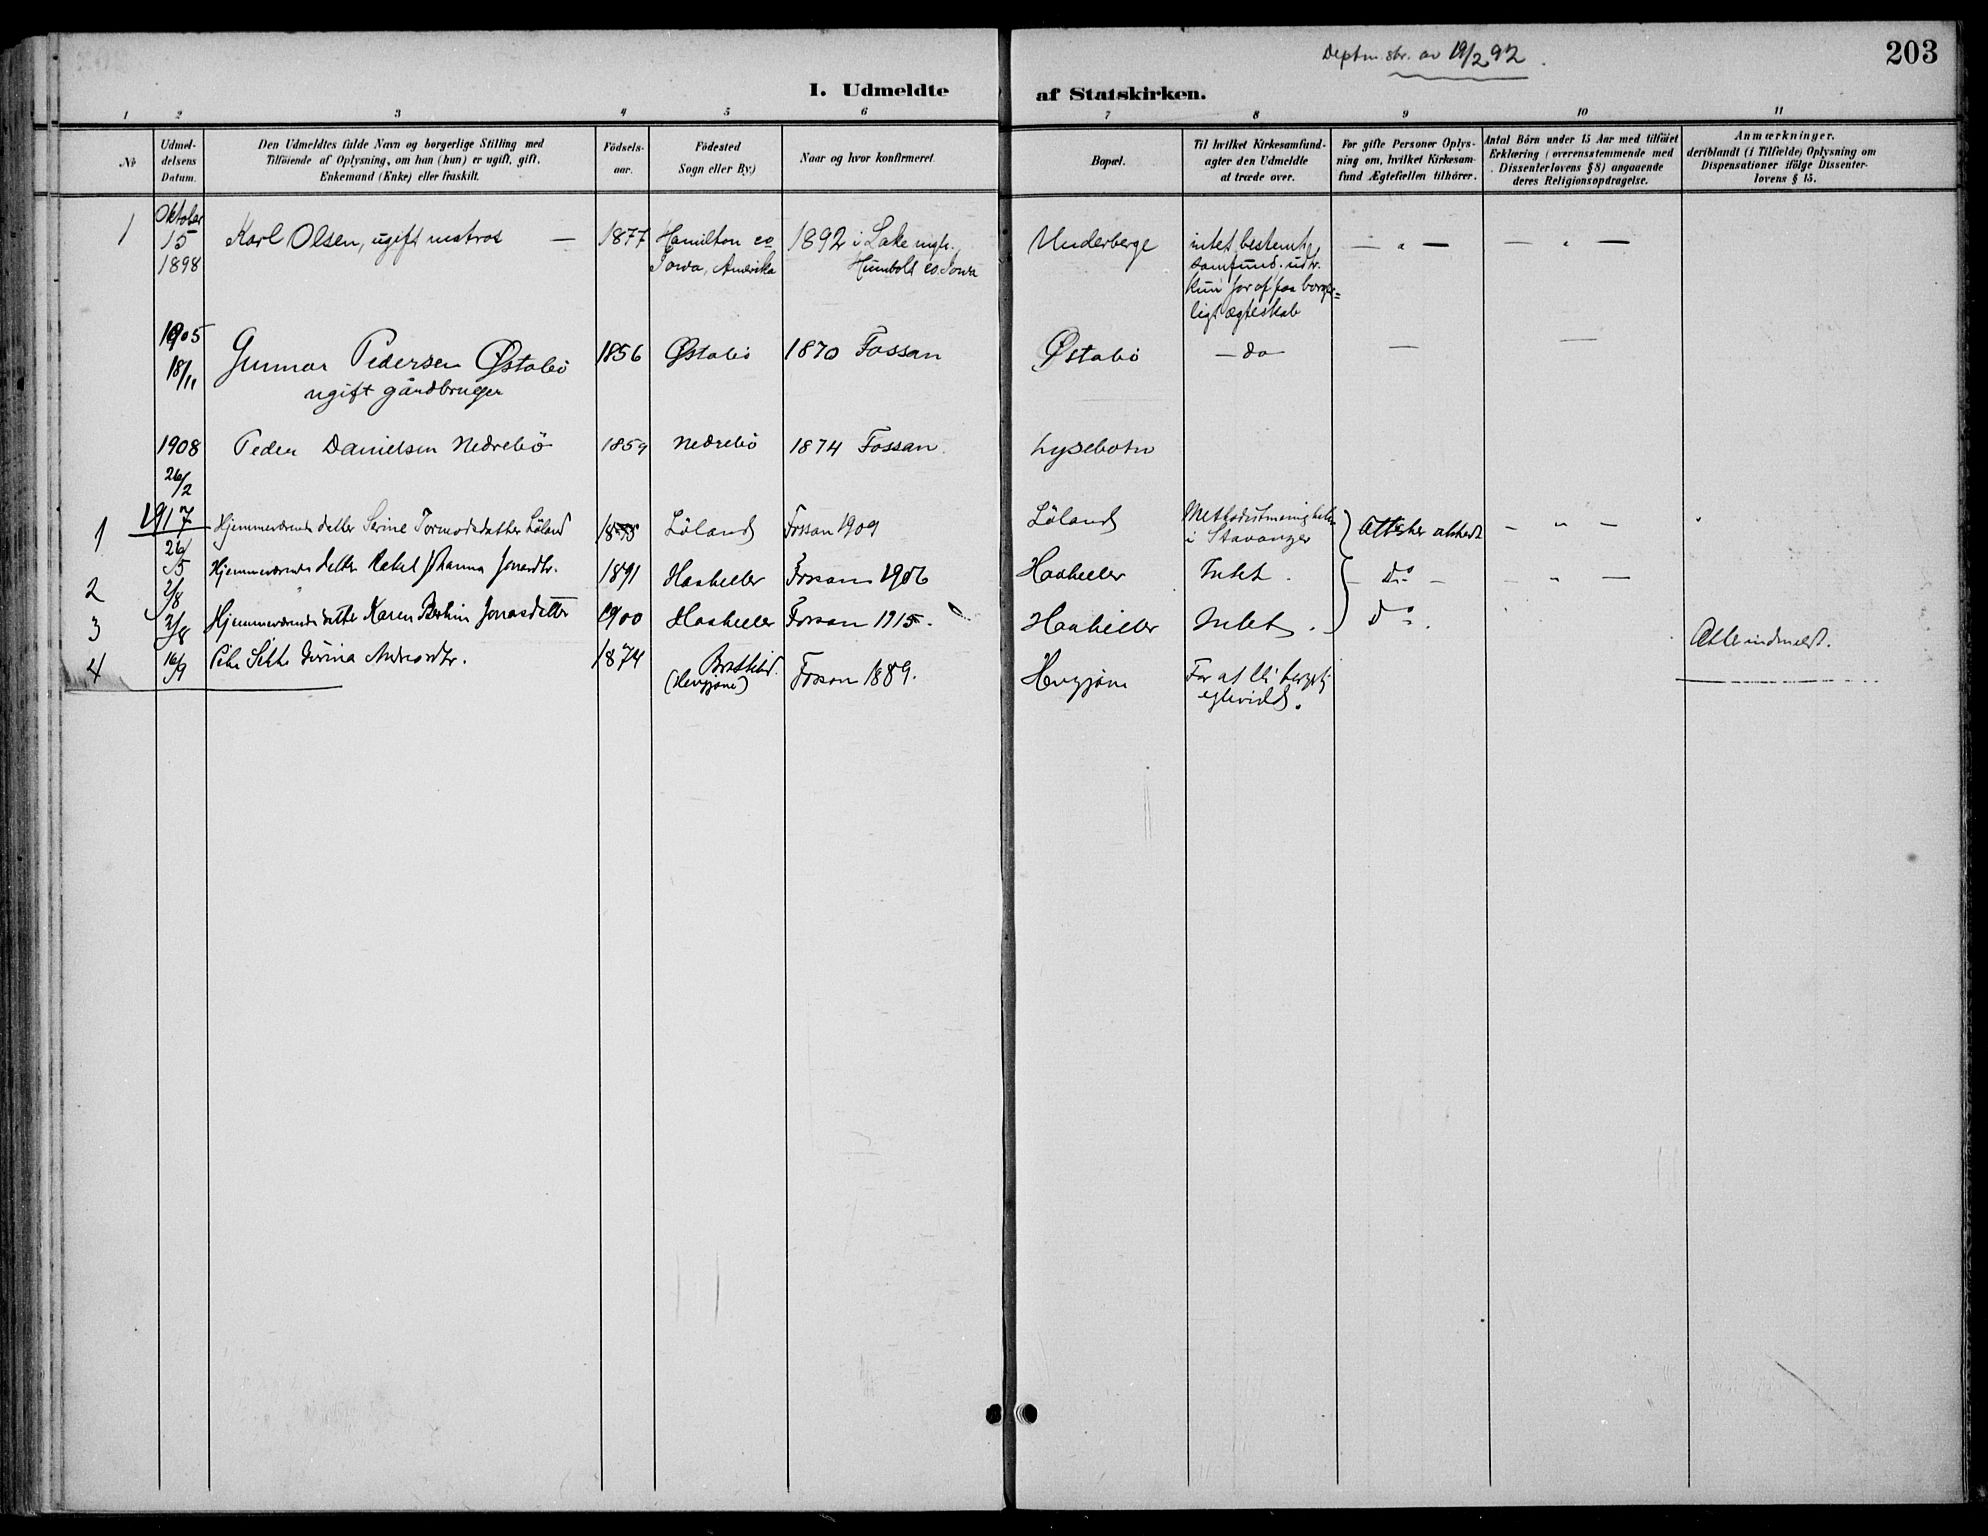 Deptm. skr. av 19/2 92.
203
I. Udmeldte af Statskirken.
1 2 3 4 5 6 7 8 9 10 11
No
Udmel-
delsens
Datum.
Den Udmeldtes fulde Navn og borgerlige Stilling med
Tilföiende af Oplysning, om han (hun) er ugift, gift,
Enkemand (Enke) eller fraskilt.
Födsels-
aar.
Födested
Sogn eller By.)
Naar og hvor konfirmeret.
Bopæl.
Til hvilket Kirkesamfund-
agter den Udmeldte
at træde over.
For gifte Personer Oplys-
ning om, hvilket Kirkesam-
fund Ægtefællen tilhörer.
Antal Börn under 15 Aar med tilföiet
Erklæring (overensstemmende med
Dissenterlovens § 8) angaaende
deres Religionsopdragelse.
Anmærkninger.
deriblandt (i Tilfælde) Oplysning om
Dispensationer ifölge Dissenter-
lovens § 15.
1
Oktober
15
1898
Karl Olsen, ugift matros —
1877
Hamilton co
Iowa, Amerika
1892 i Lake mgh.,
Humbolt co. Iowa
Underberge
intet bestemt
samfund. udtr.
kun for at faa borger=
ligt ægteskab
— „ —
— „ —
1905
18/11
Gunnar Pedersen Østabö
ugift gårdbruger
1856
Østabö
1870 Fossan
Østabö
— do —
—
—
1908
26/2
Peder Danielsen Nedrebö
1859
Nedrebö
1874 Fossan.
Lysebotn
1
1917
26/5
Hjemmeværende datter Serine Tormodsdatter Löland
Löland
Fossan 1909
Löland
i Stavanger
— „ —
2
2/8
Hjemmeværende datter Rakel Johanna Jonasdtr.
1891
Haaheller
Fossan 1906
Haaheller
Intet.
— Do —
— „ —
3
2/8
Hjemmeværende datter Karen Jonasdatter
1900
Haaheller
Fossan 1915.
Haaheller
Intet.
Do
4
16/9
Andreasdtr.
1874
Fossan 1889.
For at bli borgerlig
egteviet.
Atter indmeldt.